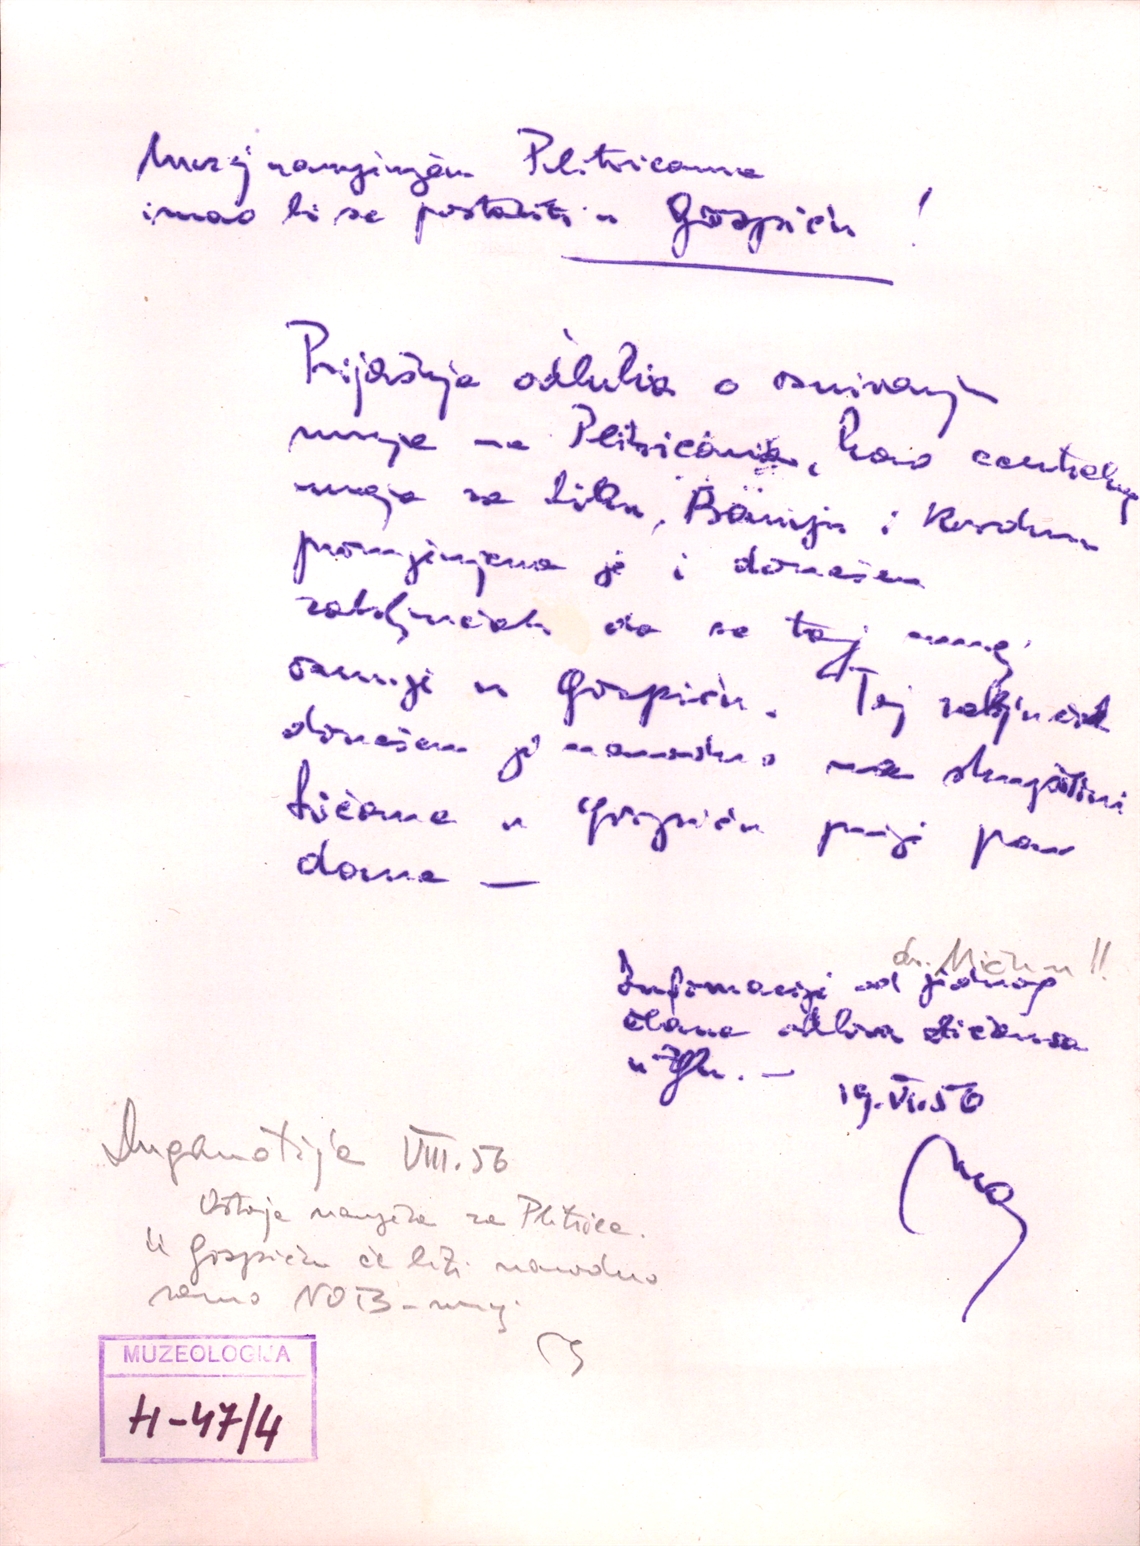 Muzej namijenjen Plitvicama
imao bi se postaviti u Gospiću !
Prijašnja odluka o osnivanju
muzeja na Plitvicama, kao centralnog
muzeja za Liku, Baniju i Kordun
promijenjena je i donešen
zaključak da se taj muzej
osnuje u Gospiću. Taj zaključak
donešen je navodno na skupštini
Ličana u Gospiću prije par
dana —
dr. Mičku !!
Informacije od jednog
člana odbora Ličana
u Zgbu. — 19.VI.56
VIII.56
Ostaje namjera za Plitvice.
U Gospiću će biti navodno
samo NOB-muzej
MUZEOLOGIJA
H-47/4